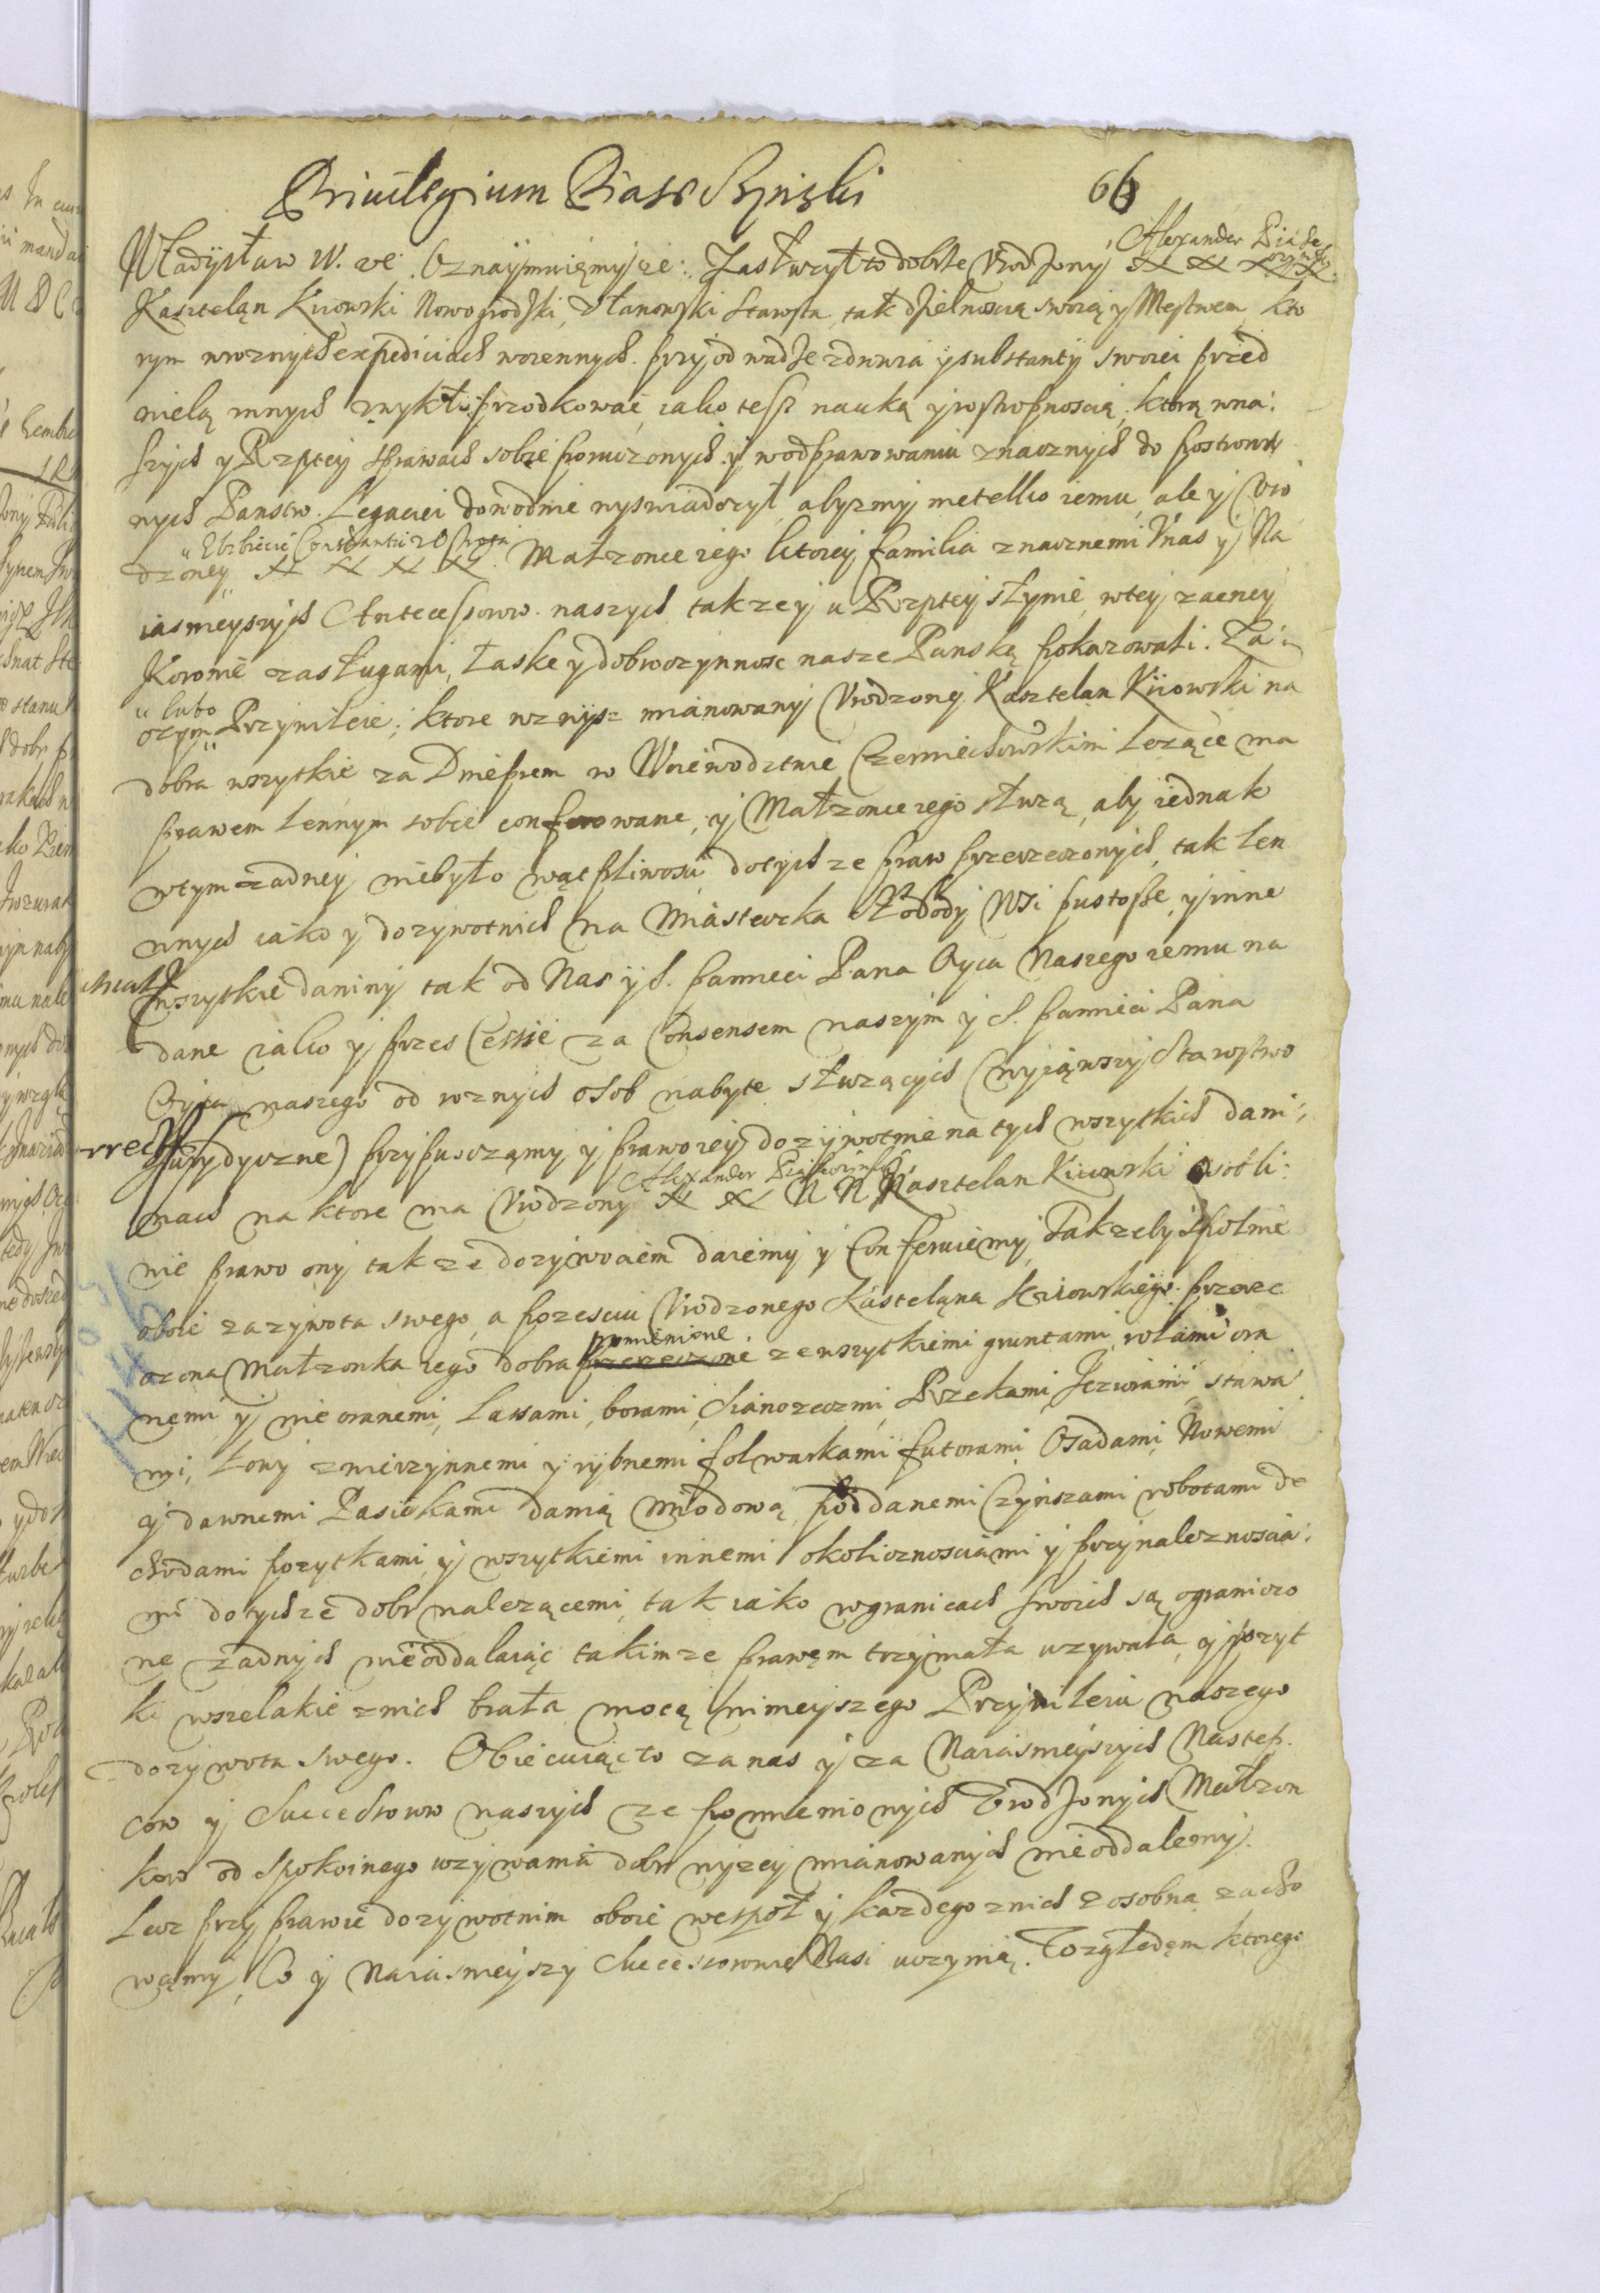 Priuilegium Piaseczynski
66
Władysław IV. etc. Oznaymuięmy że: Zasłuzył to dobrze Vrodzony Alexander Piaseczynski
Kaszteląn Kiiowski Nowogrodzki, Vlanowski Starosta, tak dzielnoscią swoią y Męstwem, kto
rym wroznych expediciach woiennych przy odwadze zdrowia y substantij swoiei przed
wielą innych zwykł przodkować, iako tesz nauką y rostropnoscią, ktorą wna:
szych y Rzptey sprawach sobie poruczonych, y w odprawowaniu znacznych do postron
nych Panstw Legaciei dowodnie wyswiadczył, abysmy nie telko iemu, ale y Vro
dzoney Elzbiecie Constantii Małzonce iego ktorey familia znacznemi v nas y Na
iasnieyszych Antecessorow naszych takze y u Rzptey słynie, w tey zacney
Koronie zasługami, łaskę y dobroczynnosc nasze Panską pokazowali. Za:
czym u lubo Przywileie, ktore wzwysz mianowany Vrodzony Kasztelan Kiiowski na
dobra wszytkie za Dnieprem w Woiewodztwie Czerniechowskim lezące ma
prawem lennym sobie conferowane, y Małzonce iego słuzą, aby iednak
wtym zadney niebyło wątpliwosci dotych ze praw przerzeczonych, tak len
nych iako y dozywotnich na Miasteczka Słobody Wsi pustosze, y inne
wszytkie daniny tak od Nas y S. pamieci Pana Oyca Naszego iemu na
dane iako y przes Cessie za Consensem naszym y S. pamieci Pana
Oyca naszego od roznych osob nabyte słuzących (wyiąwszy Starostwo
Jurydyczne) przypusczamy y prawo iey dozywotnie na tych wszytkich dani:
nach na ktore ma Vrodzony Alexander Piaseczinski N N Kasztelan Kiiowski osobli:
nie prawo ony takze dozywociem daiemy y Conferuiemy, Tak zeby spolnie
oboie za zywota swego, a po zesciu Vrodzonego Kasztelana Kiiowskiego przerze
czona Małzonka iego dobra pomienione ze wszytkiemi gruntami, rolami ora
nemi y nie oranemi, Lassami, borami, Sianozeczmi, Rzekami, Jeziorami, stawa
mi, Łowy zwierzynnemi y rybnemi folwarkami futorami, Osadami Nowemi
y dawnemi Pasiekami danią miodową poddanemi Czynszami robotami do
chodami pozytkami, y wszytkiemi innemi okolicznosciami y przynaleznoscia:
mi do tychze dobr nalezącemi, tak iako wgranicach swoich są ogranicz
ne zadnych nie oddalaiąc takimze prawęm trzymała uzywała, y pozyt
ki wszelakie znich brała mocą ninieyszego Przywileiu naszego
do zywota swego. Obiecuiąc to za nas y za Naiasnieyszych Nastep.
cow y Successorow naszych ze pomienionych Vrodzonych Małzon
kow od spokoinego uzywania dobr wyzey mianowanych nie oddalemy.
Lecz przy prawie dozywotnim oboie wespoł y kazdego znich zosobna zacho
wąmy, Co y Naiasnieyszy Successorowie Nasi uczynią. Wzgledęm ktorego